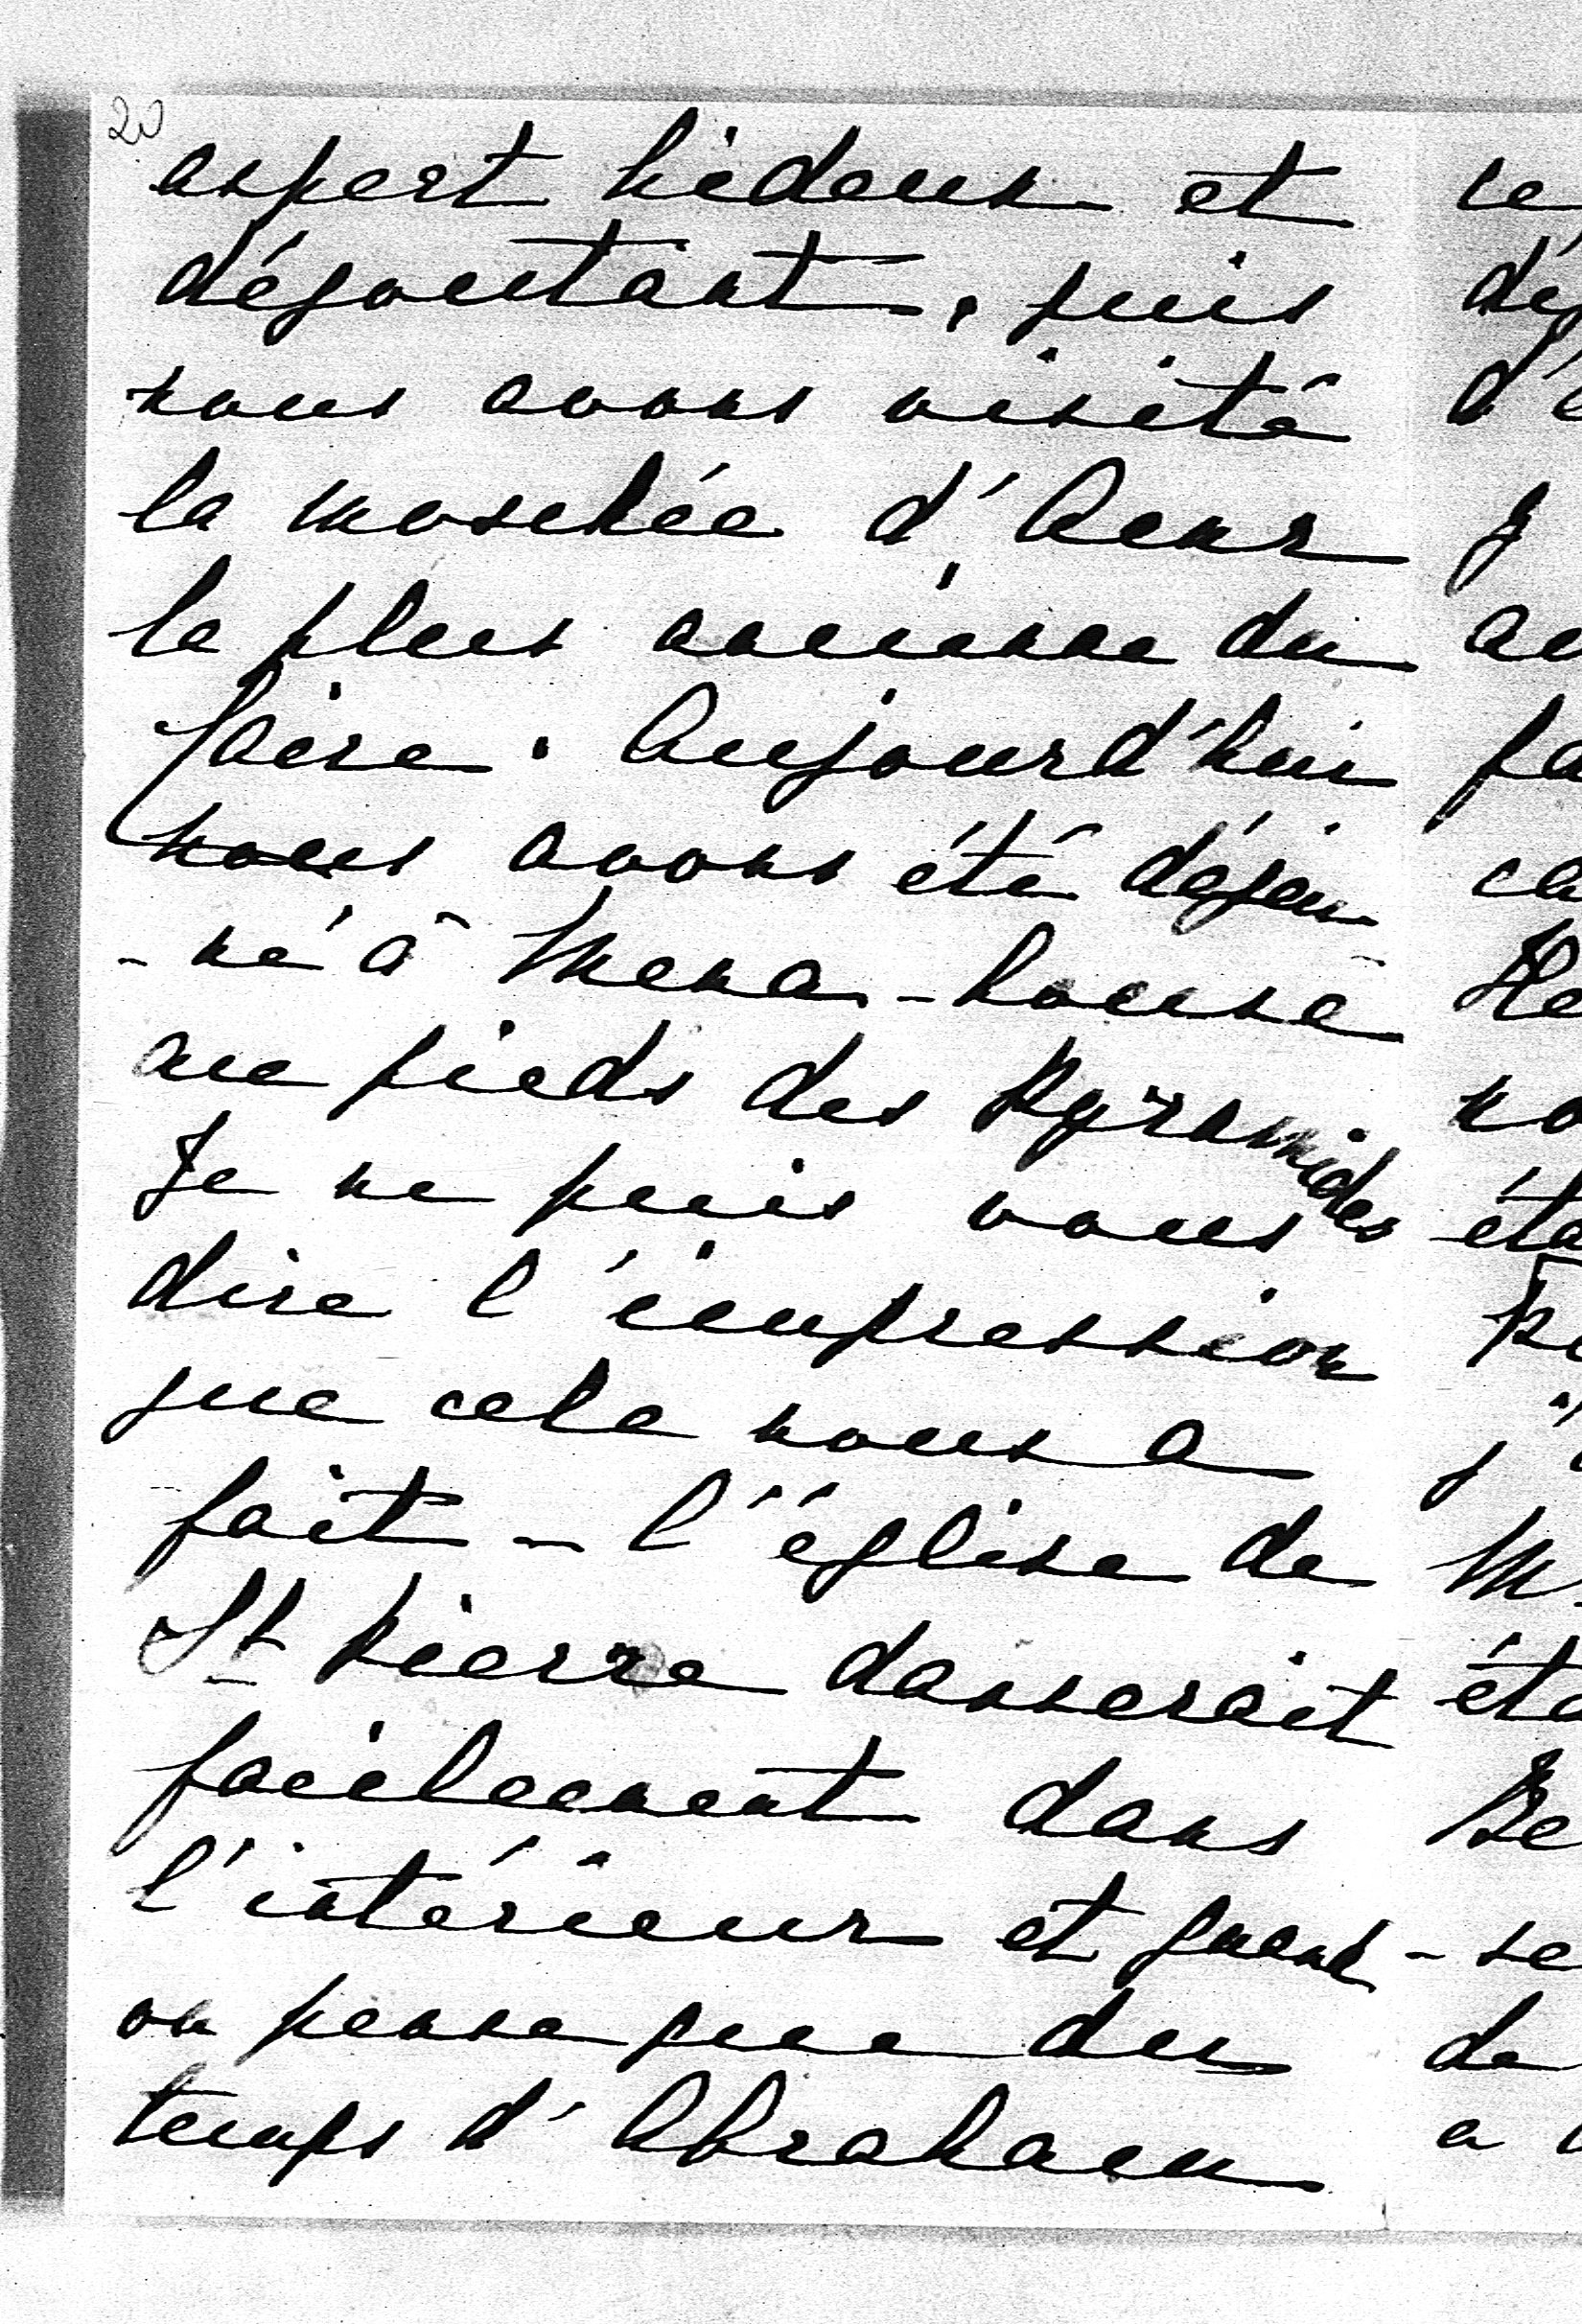 20
aspect hideux et
dégoutant, puis
nous avons visité
la moschée d'Amr
la plus ancienne du
Caire. Aujourd'hui
nous avons été déjeu-
-né à Mena-house
au pieds des Pyramides
Je ne puis vous
dire l'impression
que cela nous a
fait - l'église de
St Pierre danserait
facilement dans
l'intérieur et quand
on pense que du
temps d'Abraham